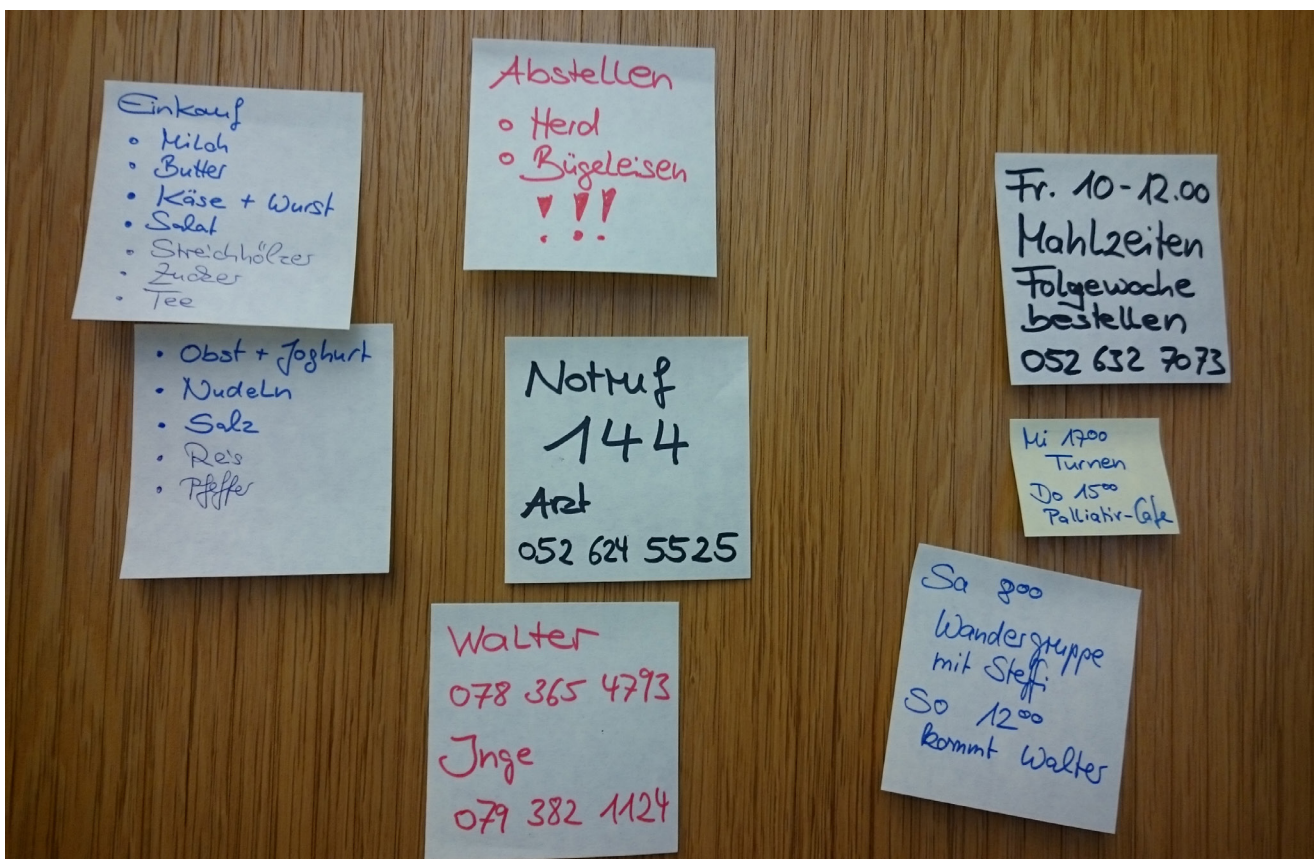 Einkauf
• Milch
• Butter
• Käse + Wurst
• Salat
• Streichhölzer
• Zucker
• Tee
• Obst + Joghurt
• Nudeln
• Salz
• Reis
• Pfeffer
Abstellen
o Herd
o Bügeleisen
!!!
Notruf
144
Arzt
052 624 5525
Walter
078 365 4793
Inge
079 382 1124
Fr. 10-12.00
Mahlzeiten
Folgewoche
bestellen
052 632 7073
Mi 17⁰⁰
Turnen
Do 15⁰⁰
Palliativ-Cafe
Sa 8⁰⁰
Wandergruppe
mit Steffi
So 12⁰⁰
kommt Walter